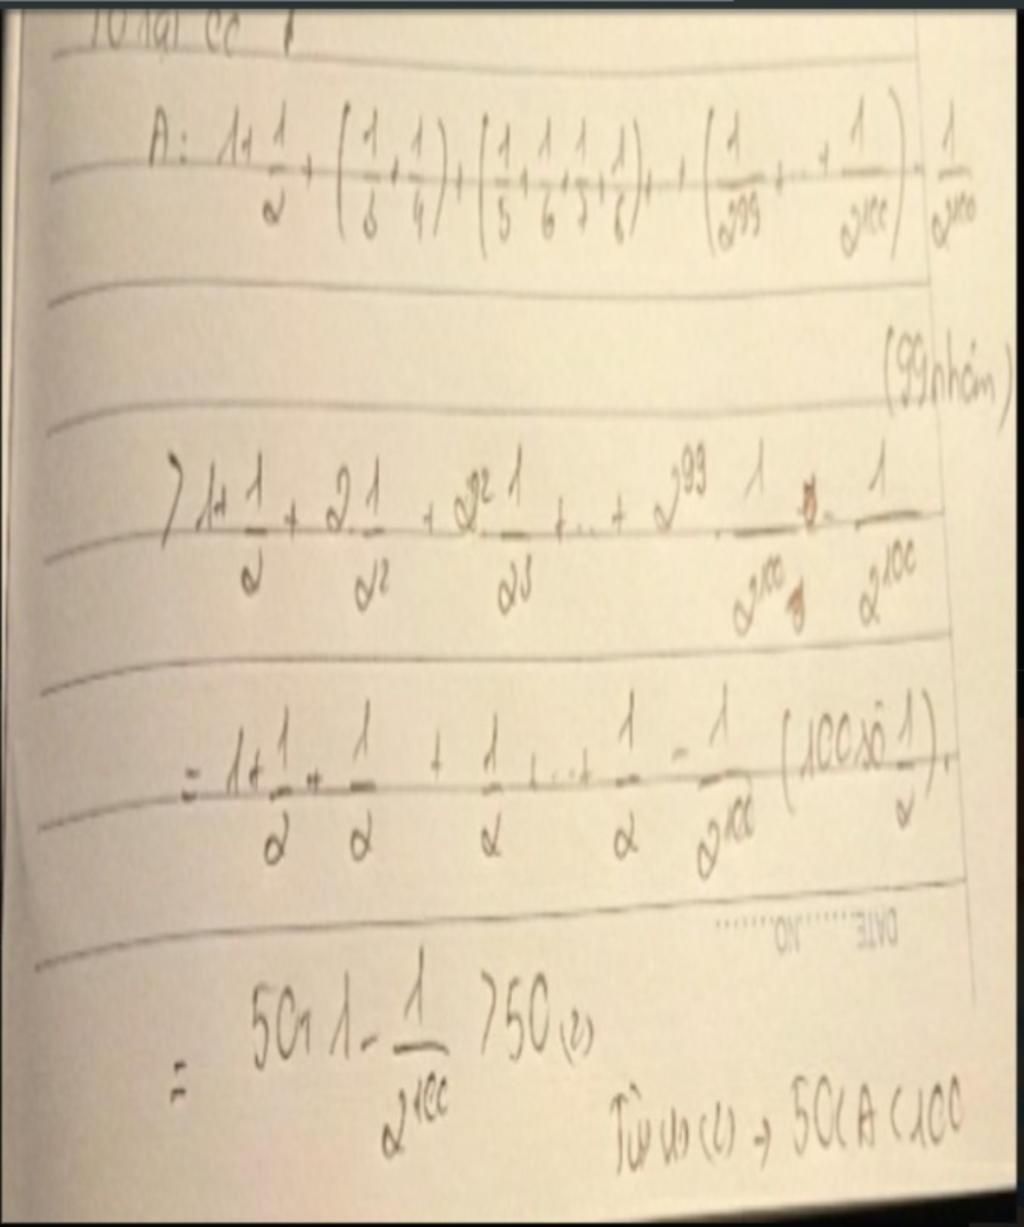 A = 1 + 1/2 + (1/3 + 1/4) + (1/5 + 1/6 + 1/7 + 1/8) + .. + (1/2^99 + .. + 1/2^100) - 1/2^100
(99 nhóm)
> 1 + 1/2 + 2.1/2^2 + 2^2.1/2^3 + .. + 2^99.1/2^100 - 1/2^100
= 1 + 1/2 + 1/2 + 1/2 + .. + 1/2 - 1/2^100 (100 số 1/2).
DATE.......NO.......
= 50 + 1 - 1/2^100 > 50 (2)
Từ (1) (2) → 50 < A < 100